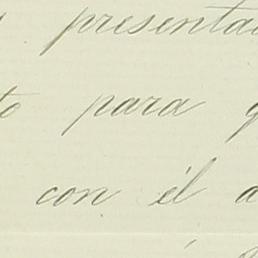 presenta
to para
con él a